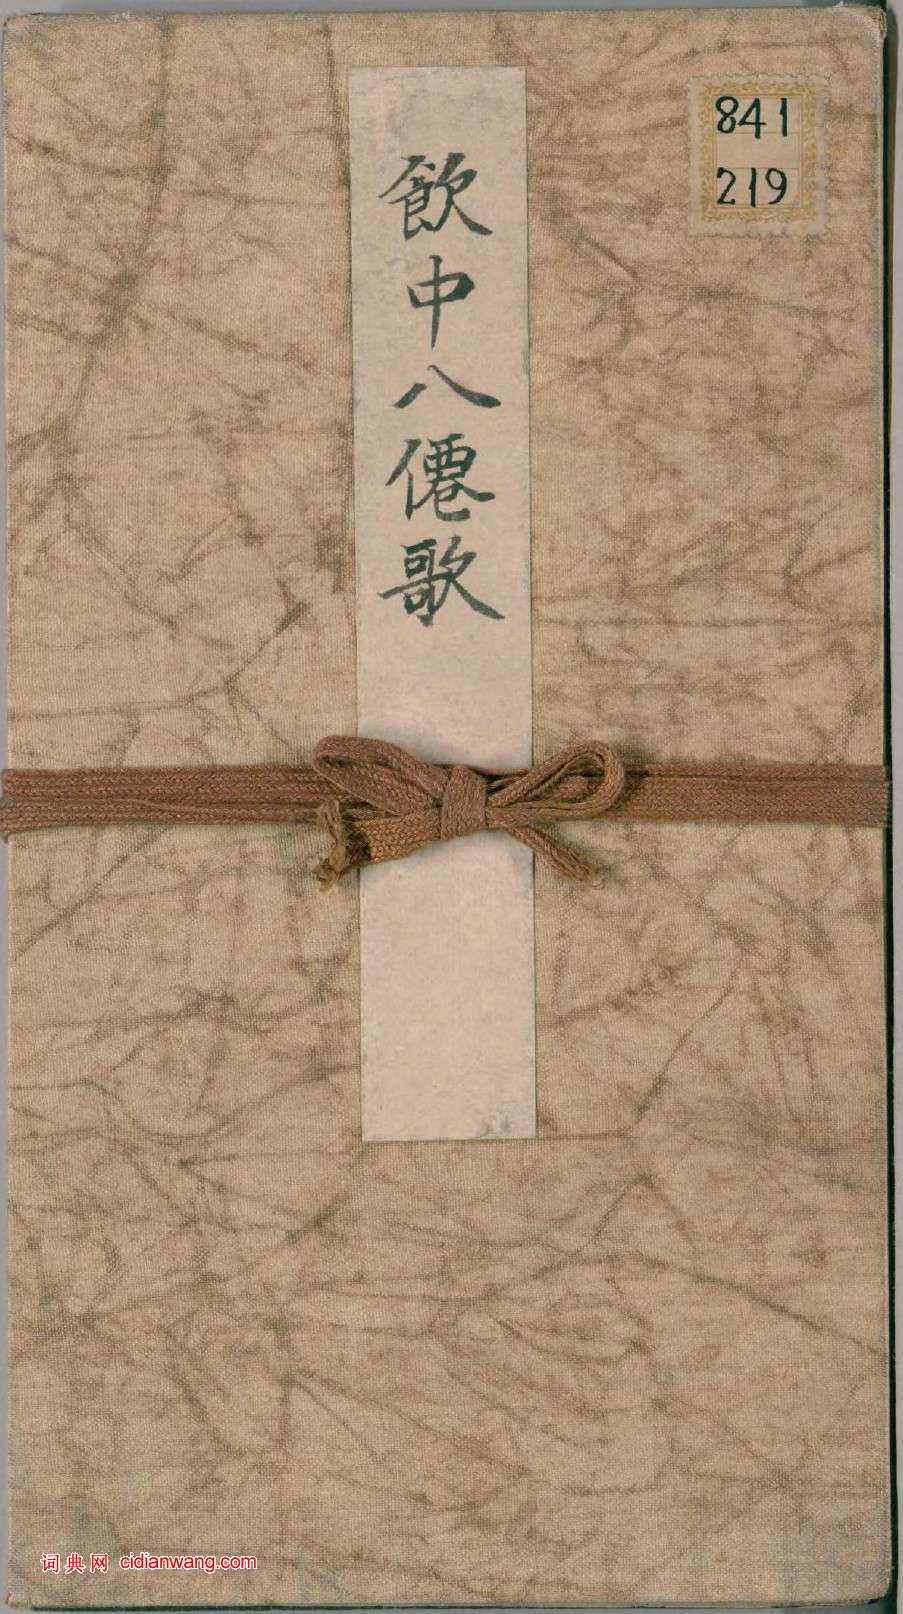 飲中八僊歌
841
219
词典网 cidianwang.com